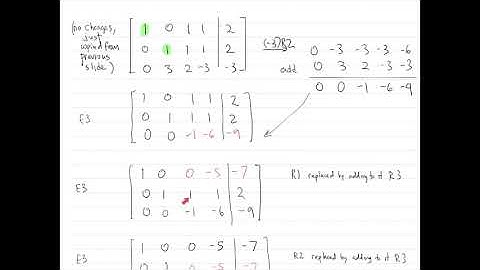 (no changes, just copied from previous slide)
1 0 1 1 | 2
0 1 1 1 | 2
0 3 2 -3 | -3
(-3)R2 0 -3 -3 -3 -6
add 0 3 2 -3 -3
0 0 -1 -6 -9
E3
1 0 1 1 | 2
0 1 1 1 | 2
0 0 -1 -6 | -9
E3
1 0 0 -5 | -7
0 1 1 1 | 2
0 0 -1 -6 | -9
R1 replaced by adding to it R3
E3
1 0 0 -5 | -7
R2 replaced by adding to it R3